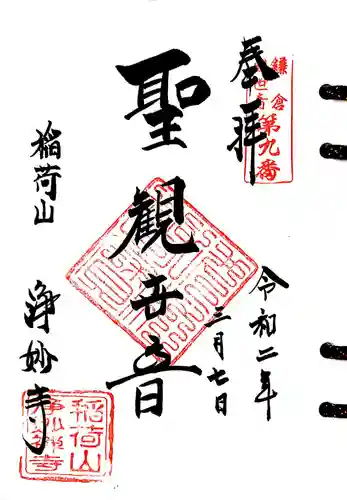 奉拝
鎌倉
第九番
令和二年
三月七日
聖観世音
稲荷山
浄妙寺
稲荷山
浄妙寺